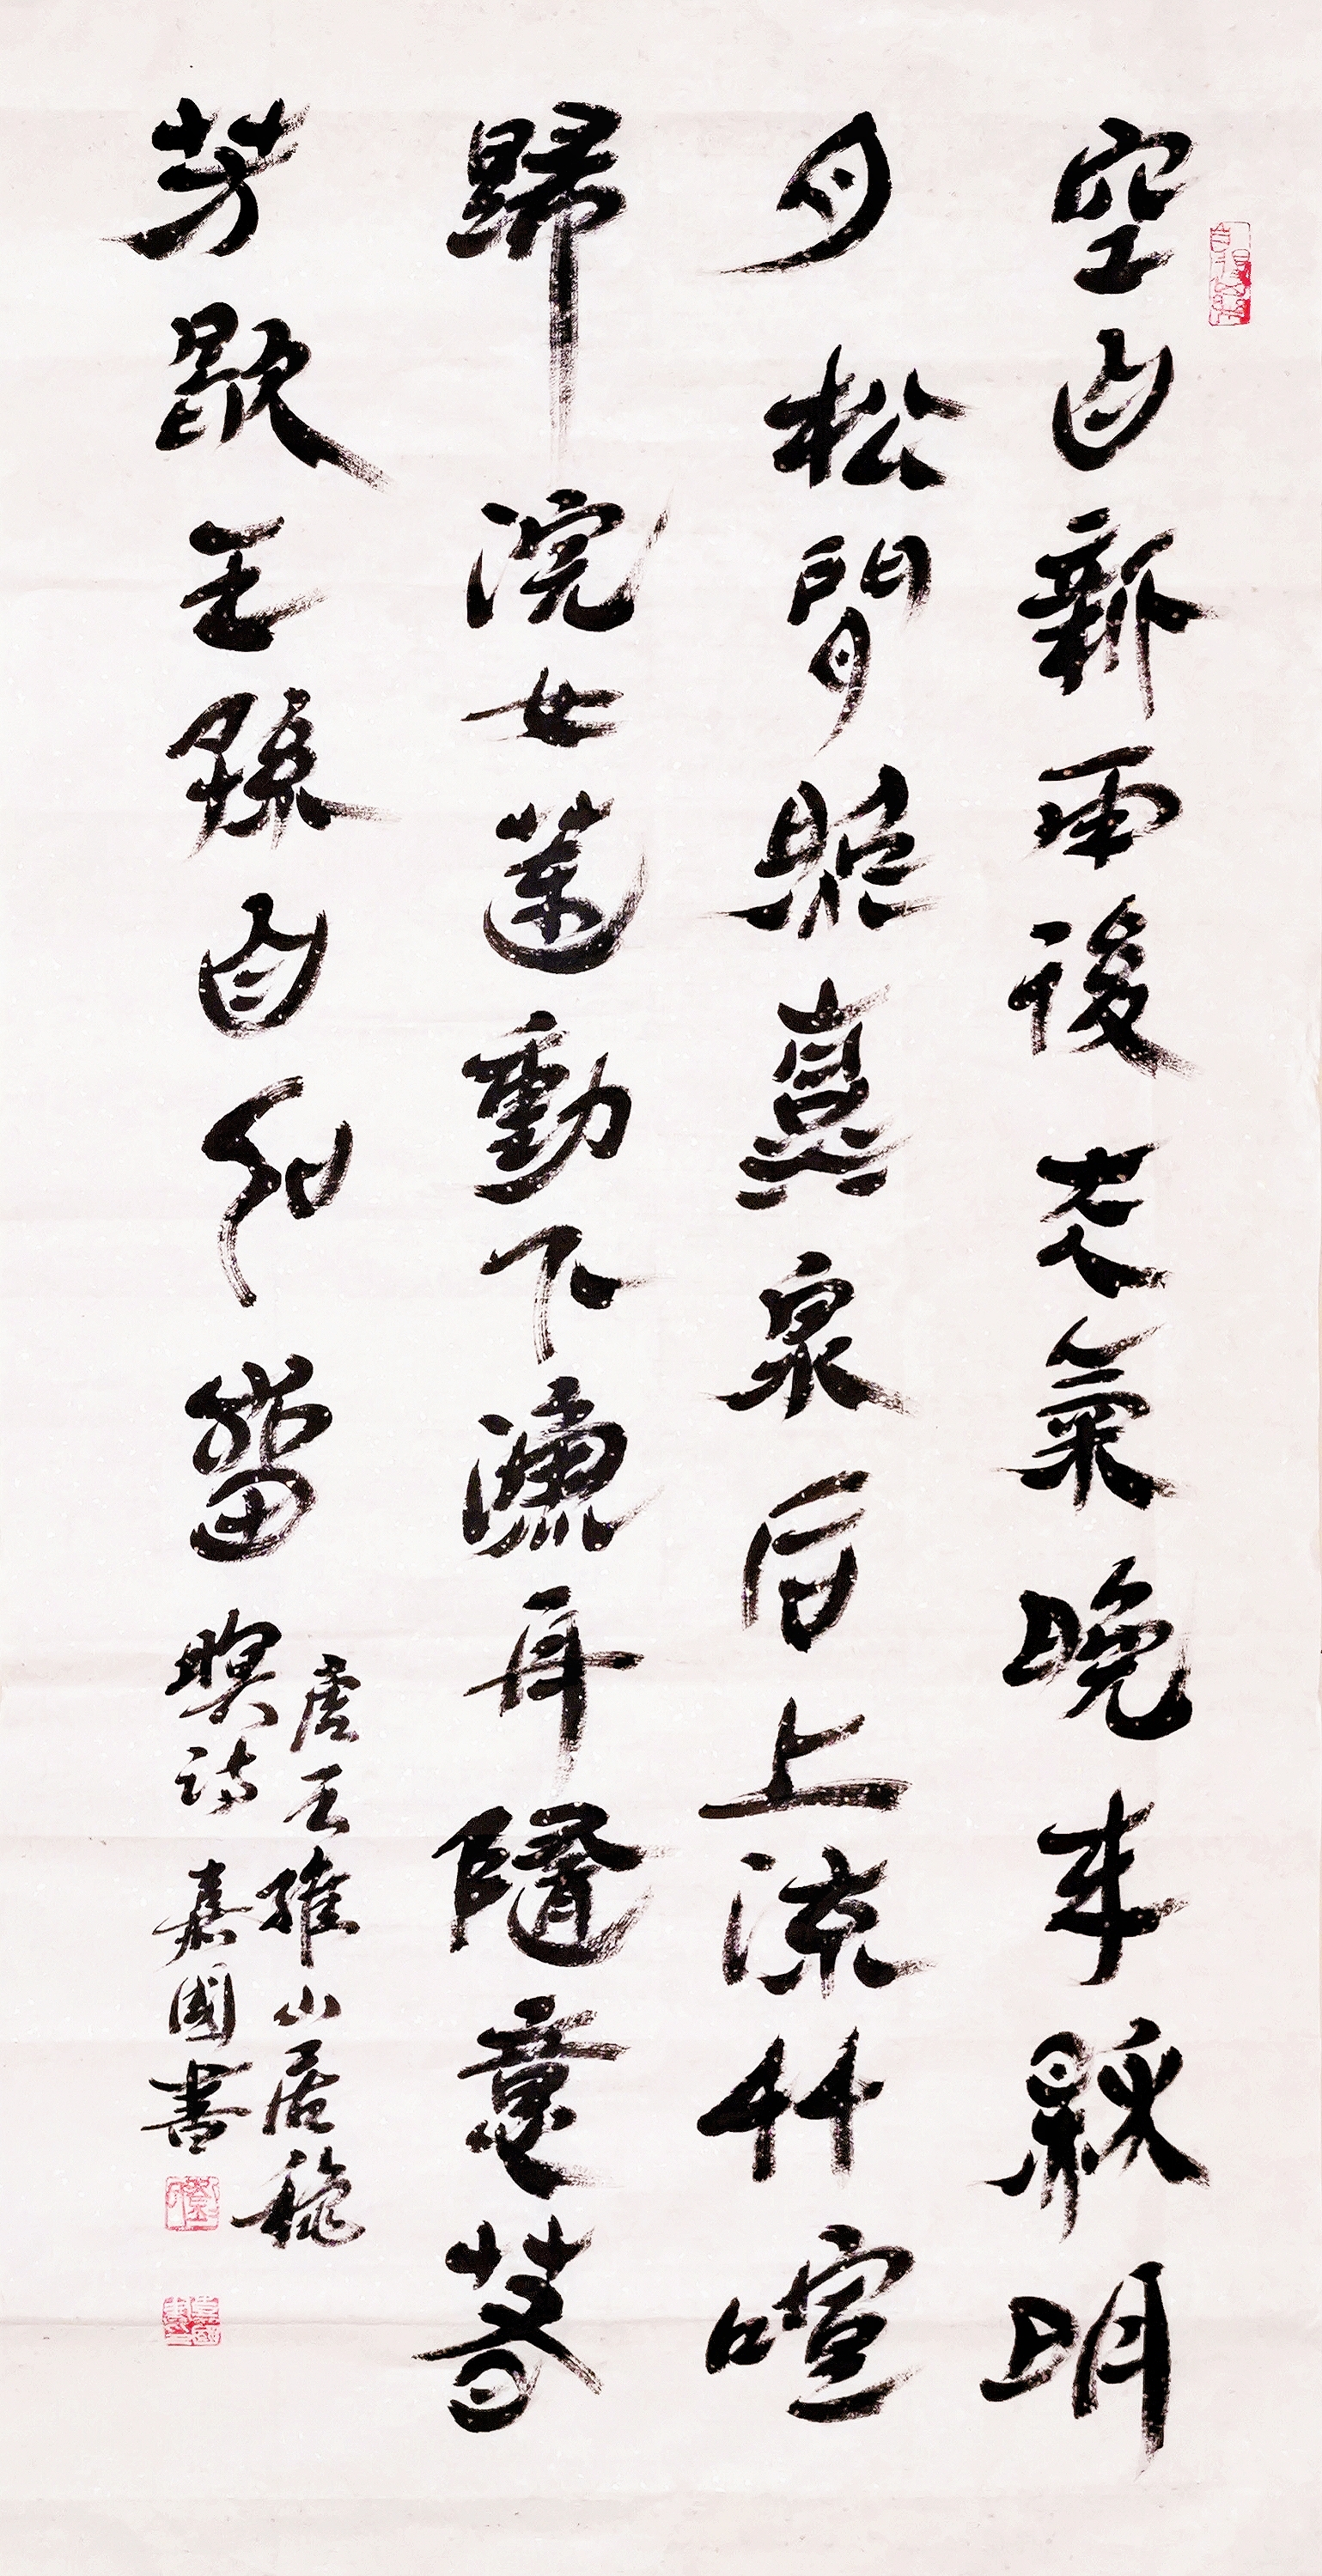 空山新雨後天氣晚来秋明
月松閒照清泉石上流竹喧
歸浣女蓮動下漁舟隨意春
芳歇王孫自可留
唐王維山居秋
暝詩 嘉國書